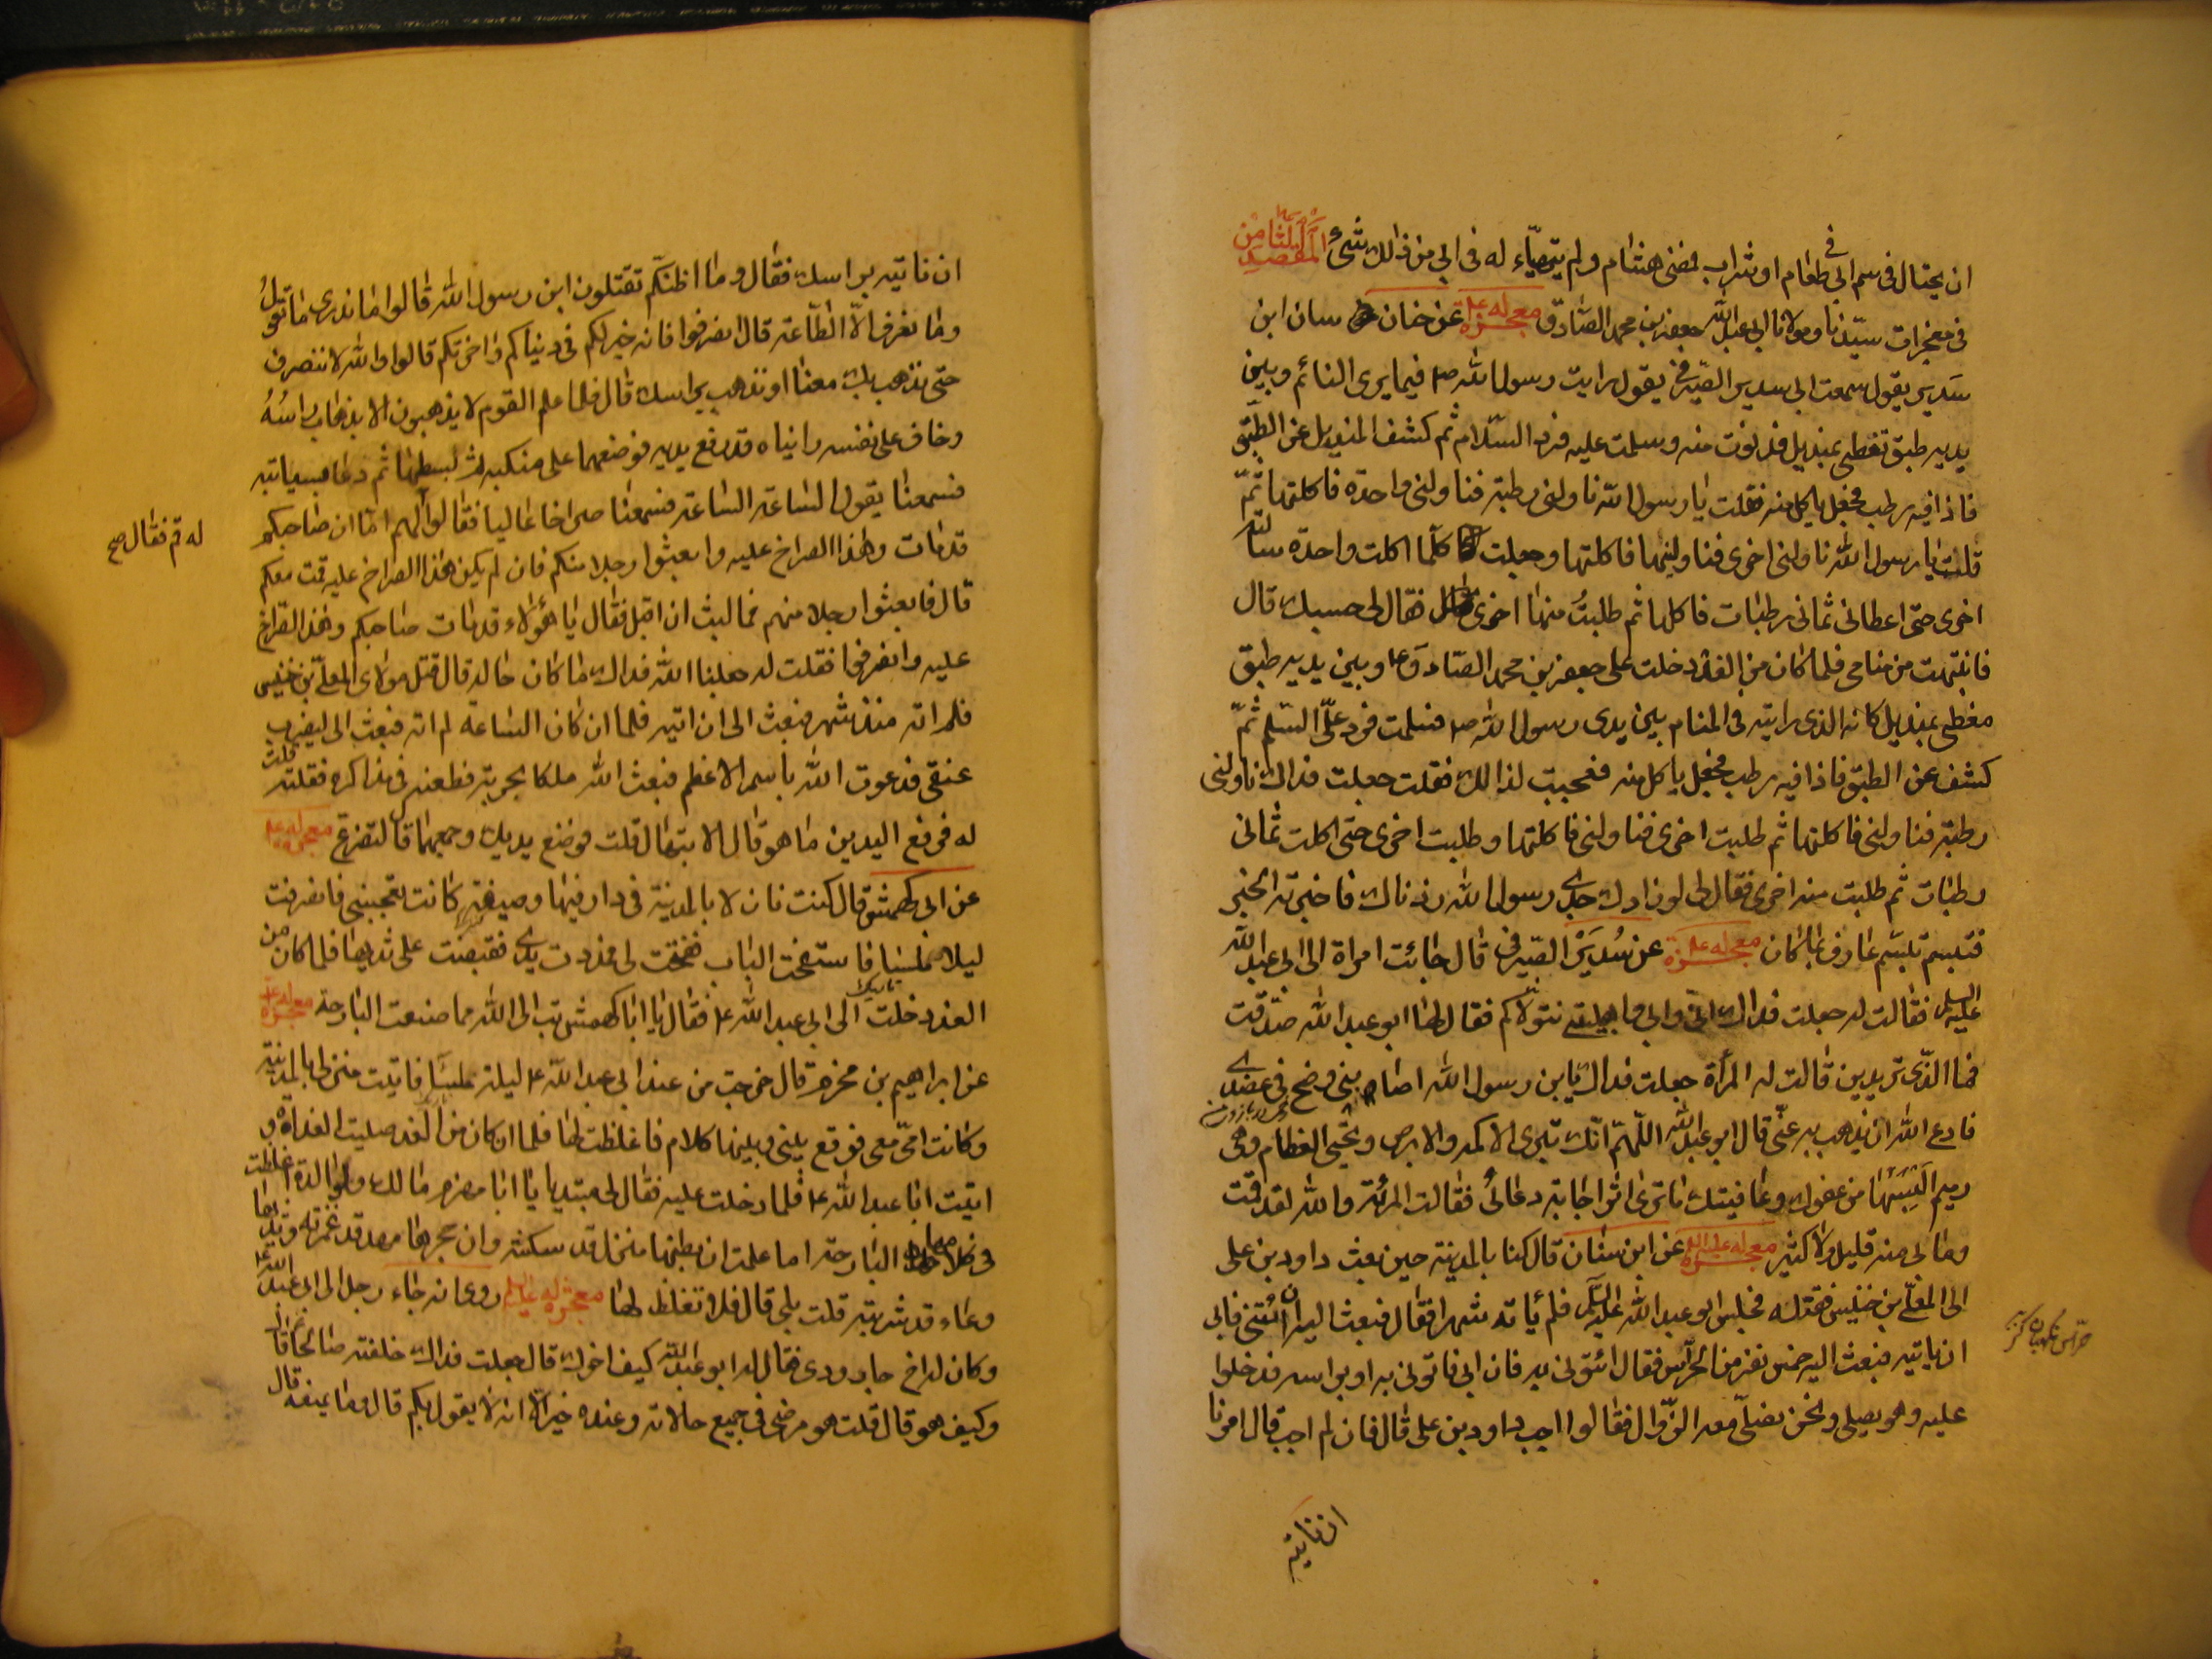 ان يحتال فى سم ابى فى طعام او شراب فمضى هشام ولم يتهيّاء له فى ابى من ذلك شىء المقصد الثامن
فى معجزات سيّدنا ومولانا ابى عبد الله جعفر بن محمد الصّادق معجزة له ع عن حنان سان ابن
سدير يقول سمعت ابى سدير الصّيرفى يقول رايت رسول الله ص فيما يرى النائم وبين
يديه طبق تغطى بمنديل فدنوت منه وسلمت عليه فرد السّلام ثم كشف المنديل عن الطبّق
فاذا فيه رطب فجعل ياكل منه فقلت يا رسول الله ناولنى رطبة فناولنى واحدة فاكلتها ثمّ
قلت يا رسول الله ناولنى اخرى فناولنيها فاكلتها وجعلت كلّما اكلت واحدة سالته
اخرى حتى اعطانى ثمانى رطبات فاكلها ثم طلبتُ منها اخرى فقال لى حسبك قال
فانتبهت من منامى فلما كان من الغد دخلت على جعفر بن محمد الصّادق ع وبين يديه طبق
مغطى بمنديل كانه الذى رايته فى المنام بين يدى رسول الله ص فسلمت فرد علّى السّلم ثمّ
كشف عن الطبق فاذا فيه رطب فجعل ياكل منه فعجبت لذلك فقلت جعلت فداك ناولنى
رطبة فناولنى فاكلتها ثم طلبت اخرى فناولنى فاكلتها وطلبت اخرى حتى اكلت ثمانى
رطبات ثم طلبت منه اخرى فقال لى لو زادك جدى رسول الله زدناك فاخبرته الخبر
فتبسم تبسّم عارف بما كان معجزة له ع عن سُدَير الصّيرفى قال جائت امراة الى ابى عبد الله
عليه السلم فقالت له جعلت فداك ابى وابى واهل بيتى نتولاكم فقال لها ابو عبد الله صدّقت
فما الذّى تريدين قالت له المرأة جعلت فداك يابن رسول الله اصابنى وضح فى عضدى
فادع الله ان يذهب به عنّى قال ابو عبد الله اللّهمّ انّك تبرى الاكمه والابرص وتحيى العظام وهى
رميم اَلبِسَها من عفوك وعافيتك ما ترى اثر اجابة دعائى فقالت المرئة والله لقد قمت
وما بى منه قليل ولا كثير معجزة له عليه السلم عن ابن سنان قال كنا بالمدينة حين بعث داود بن على
الى المعلّى بن خنيس فقتله فجلس ابو عبد الله عليه السّلم فلم يأته شهرا فقال فبعث اليه ان ائتنى فابى
ان ياتيه فبعث اليه خمس نفر من الحرّاس فقال ائتونى به فان ابى فاتونى به او براسه فدخلوا
عليه وهو يصلى ونحن نصلّى معه الزّوال فقالوا اجب داود بن على قال فان لم اجب قال امرنا
ان ناتيه
حرّاس نگهبان كنز
ان ناتيه براسك فقال وما اظنكّم تقتلون ابن رسول الله قالوا ما ندرى ما تقول
وما نعرف الّا الطّاعة قال انصرفوا فانه خير لكم فى دنياكم واخرتكم قالوا والله لا ننصرف
حتى نذهب بك معنا او نذهب براسك قال فلما علم القوم لا يذهبون الا بذهاب راسُهُ
وخاف على نفسه رايناه قد رفع يديه فوضعهما على منكبيه ثم بسطهما ثم دعا بسبابته
فسمعنا يقول الساعة الساعة فسمعنا صراخا عاليا فقالوا لهم امّا ان صاحبكم
له قم فقال صح
قد مات وهذا الصراخ عليه وابعثوا رجلا منكم فان لم يكن هذا الصراخ عليه قمت معكم
قال فابعثوا رجلا منهم فما لبث ان اقبل فقال يا هؤلاء قد مات صاحبكم وهذا الصّراخ
عليه وانصرفوا فقلت له جعلنا الله فداك ما كان حاله قال قتل مولاى المعلّى بن خنيس
فلم اته منذ شهر فبعث الى ان اتيه فلما ان كان الساعة لم اته فبعث الى ليضرب
عنقى فدعوت الله باسمه الاعظم فبعث الله ملكا بحربة فطعنه فى مذاكره فقتلته قلت
له فرفع اليدين ما هو قال الابتهال قلت فوضع يديك وجمعهما قال التضرع معجزة له ع
عن ابى كهمش قال كنت نازلا بالمدينة فى دار فيها وصيفة كانت تعجبنى فانصرفت
ليلا ممسيا فاستفتحت الباب ففتحت لى فمددت يدى فقبضت على ثديها فلما كان من
الغد دخلت الى ابى عبد الله ع فقال يا ابا كهمش تب الى الله مما صنعت البارحة معجزة له ع
عن ابراهيم بن مهزم قال خرجت من عند ابى عبد الله ع ليلة ممسيًا فاتيت منزلى بالمدينة
وكانت امّى معى فوقع بينى وبينها كلام فاغلظت لها فلما ان كان من الغد صليت الغداة و
اتيت ابا عبد الله ع فلما دخلت عليه فقال لى مبتديا يا ابا مهزم ما لك ولوالدة اغلظت
فى كلامها البارحة اما علمت ان بطنها منزلا قد سكنته وان حجرها مهد قد غمزته وثديها
وعاء قد شربته قلت بلى قال فلا تغلظ لها معجزة له عليه السلم روى انه جاء رجل الى ابى عبد الله ع
وكان له اخ جارودى فقال له ابو عبد الله كيف اخوك قال جعلت فداك خلفته صالحا قال
وكيف هو قال قلت هو مرضى فى جميع حالاته وعنده خير الّا انه لا يقول بكم قال وما يمنعه قال